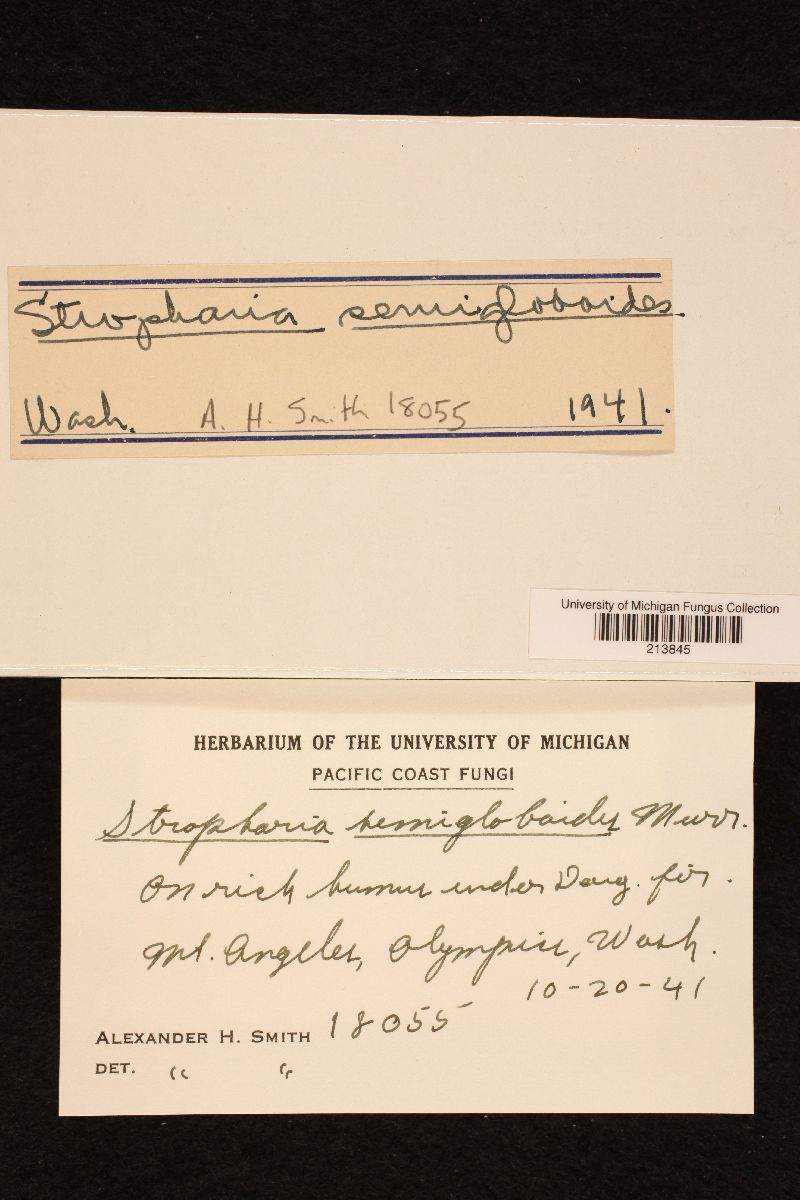 Stropharia semigloboides.
Wash. A. H. Smith 18055 1941.
University of Michigan Fungus Collection
213845
HERBARIUM OF THE UNIVERSITY OF MICHIGAN
PACIFIC COAST FUNGI
Stropharia semigloboides Murr.
On rich humus under Doug. fir.
Mt. Angeles, Olympics, Wash.
10-20-41
ALEXANDER H. SMITH 18055
DET. " "